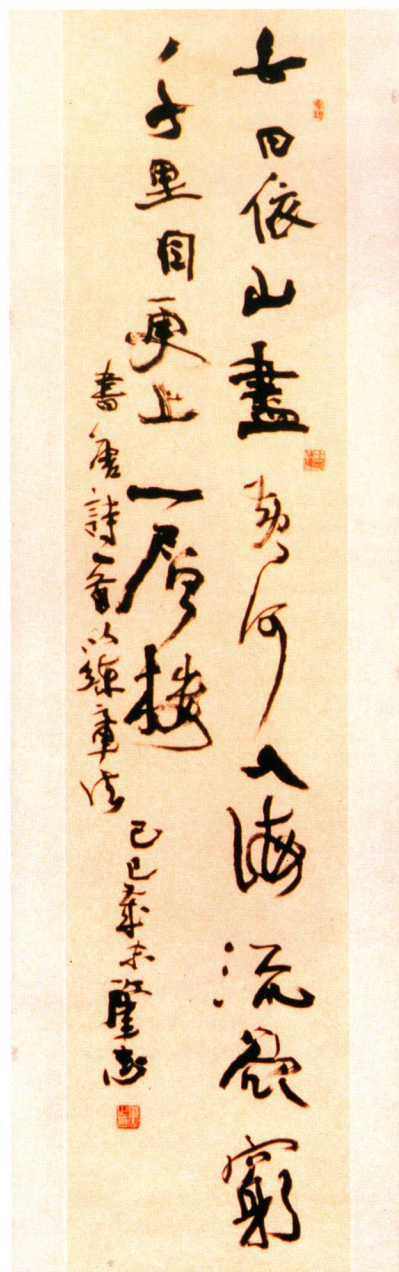 白日依山盡黃河入海流欲窮
千里目更上一層樓
書唐詩一首以練章法
己巳歲末